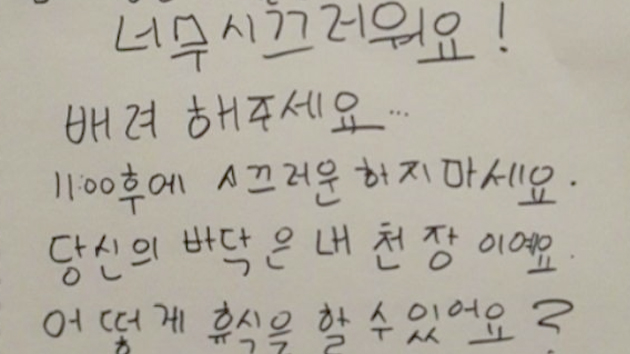 너무시끄러워요!
배려 해주세요...
11:00후에 시끄러운 하지마세요.
당신의 바닥은 내 천장 이예요.
어떻게 휴식을 할 수 있어요?